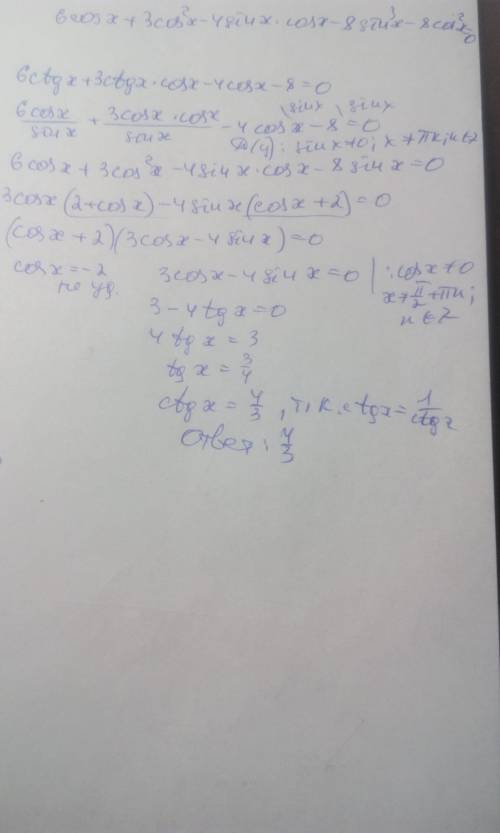 6cosx+3cos²x-4sinx·cosx-8sin³x-8cos³x=0
6ctgx+3ctgx·cosx-4cosx-8=0
6cosx/sinx + 3cosx·cosx/sinx -4cosx\sinx -8\sinx =0
D(y): sinx≠0; x≠πn, n∈Z
6cosx+3cos²x-4sinx·cosx-8sinx=0
3cosx(2+cosx)-4sinx(cosx+2)=0
(cosx+2)(3cosx-4sinx)=0
cosx=-2 3cosx-4sinx=0 |:cosx≠0
не уд. x≠π/2+πn;
3-4tgx=0 n∈Z
4tgx=3
tgx=3/4
ctgx=4/3, т.к. ctgx=1/ctgx
Ответ: 4/3